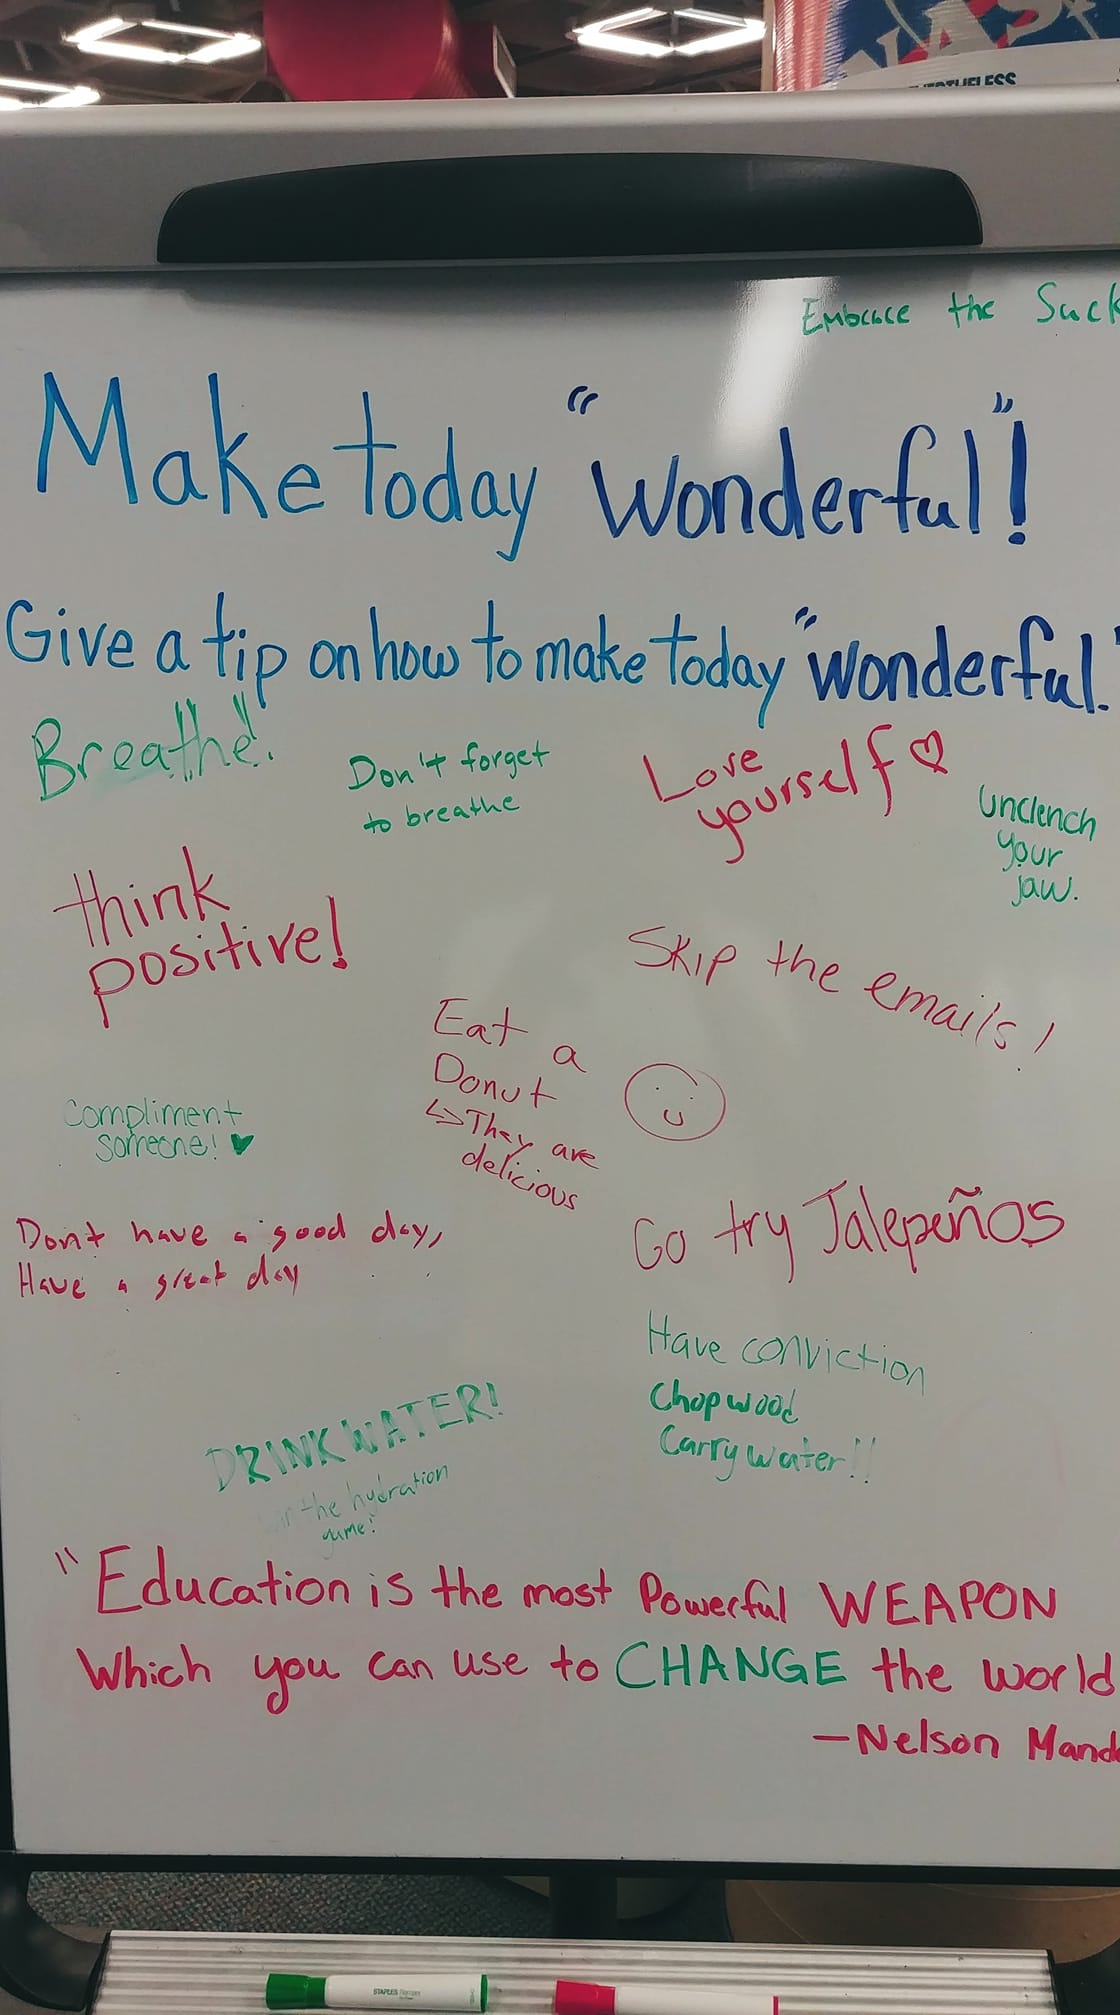 Embrace the Suck
Make today "wonderful"!
Give a tip on how to make today "wonderful."
Breathe!!
Don't forget
to breathe
Love
yourself
Unclench
your
jaw.
think
positive!
Skip the emails!
Eat a
Donut
↳> They are
delicious
Compliment
someone!
Don't have a good day,
Have a great day
Go try Jalepeños
Have conviction
Chop wood
Carry water!!
DRINK WATER!
the hydration
game!
"Education is the most Powerful WEAPON
Which you can use to CHANGE the world
—Nelson Mand
STAPLES